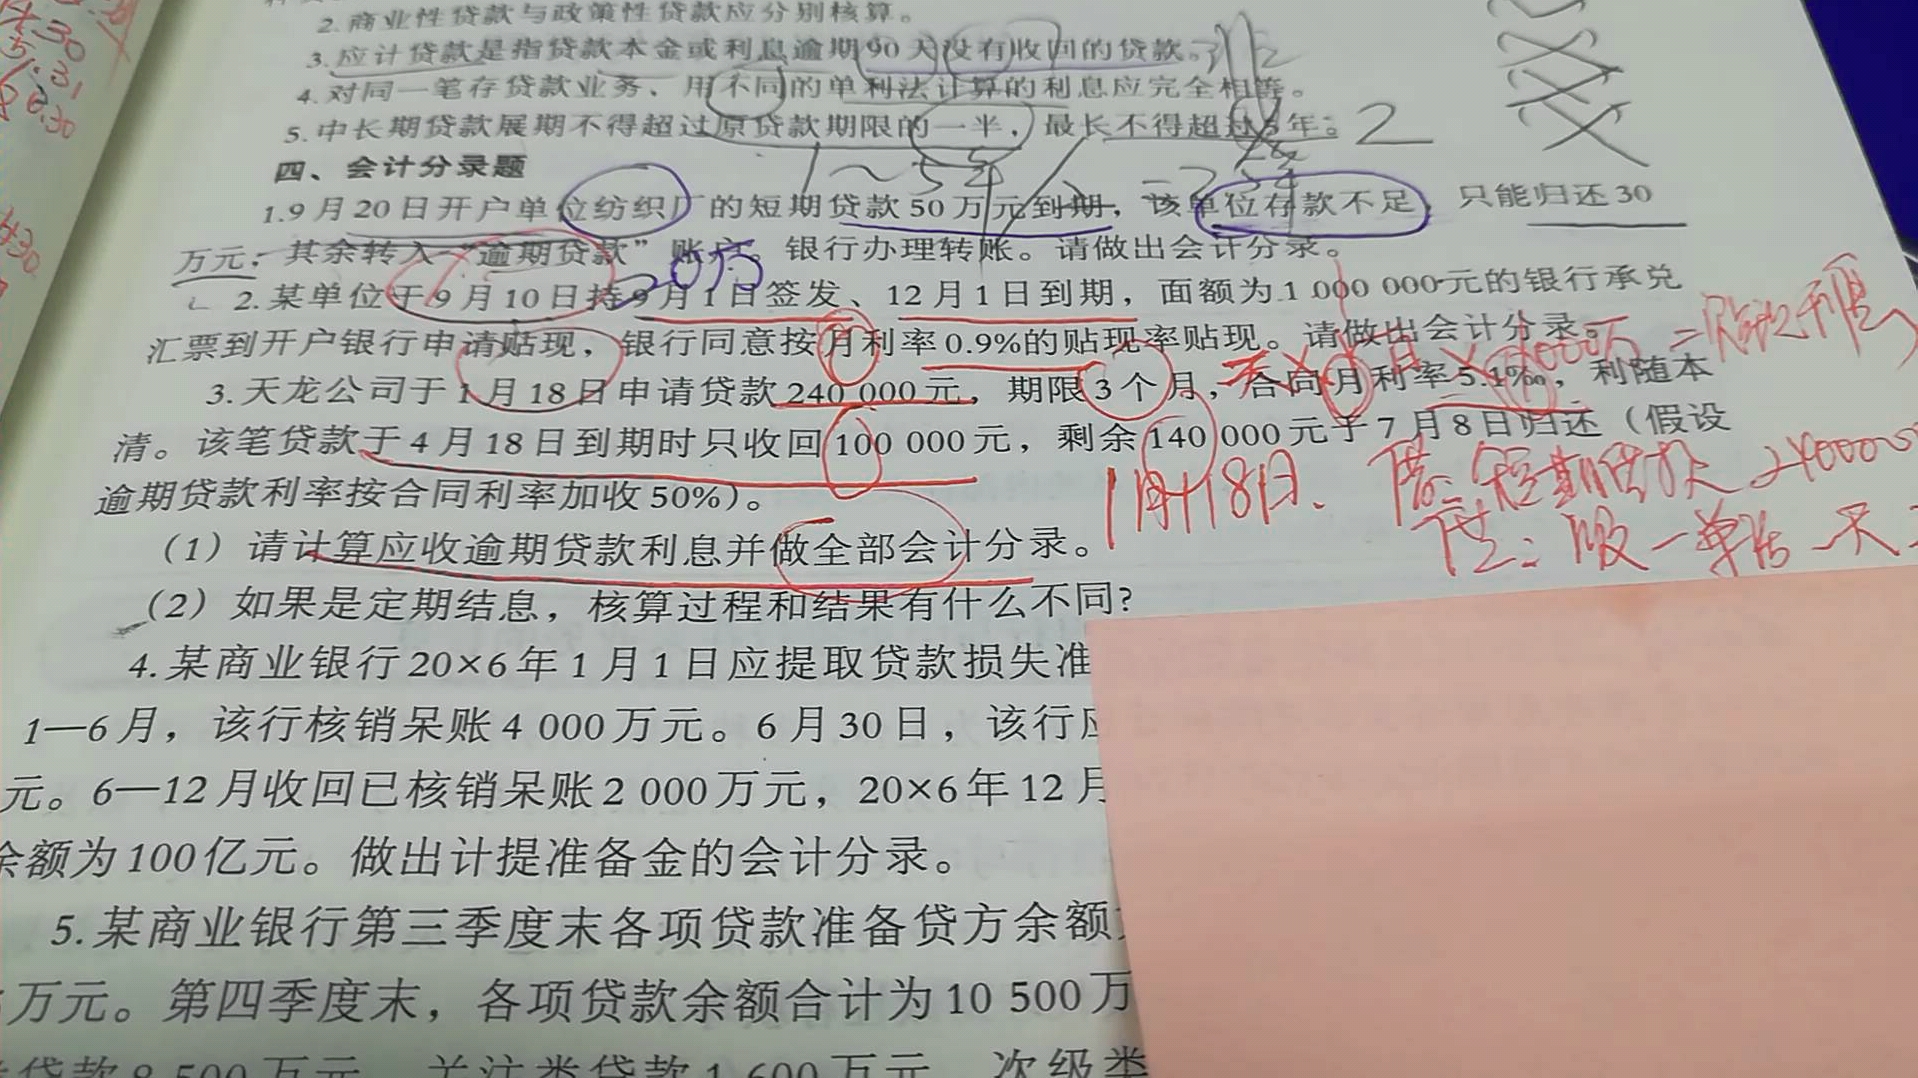 2.商业性贷款与政策性贷款应分别核算。
3.应计贷款是指贷款本金或利息逾期90天没有收回的贷款。
4.对同一笔存贷款业务、用不同的单利法计算的利息应完全相等。
5.中长期贷款展期不得超过原贷款期限的一半，最长不得超过3年。 2
四、会计分录题
1.9月20日开户单位纺织厂的短期贷款50万元到期，该单位存款不足，只能归还30
万元，其余转入“逾期贷款”账户。银行办理转账。请做出会计分录。
20万
2.某单位于9月10日持9月1日签发、12月1日到期，面额为1 000 000元的银行承兑
汇票到开户银行申请贴现，银行同意按月利率0.9%的贴现率贴现。请做出会计分录。
3.天龙公司于1月18日申请贷款240 000元，期限3个月，合同月利率5.1‰，利随本
清。该笔贷款于4月18日到期时只收回100 000元，剩余140 000元于7月8日归还（假设
逾期贷款利率按合同利率加收50%）。
1月18日、借：短期贷款 240000
（1）请计算应收逾期贷款利息并做全部会计分录。
（2）如果是定期结息，核算过程和结果有什么不同?
4.某商业银行20×6年1月1日应提取贷款损失准
1—6月，该行核销呆账4 000万元。6月30日，该行应
元。6—12月收回已核销呆账2 000万元，20×6年12月
余额为100亿元。做出计提准备金的会计分录。
5.某商业银行第三季度末各项贷款准备贷方余额
万元。第四季度末，各项贷款余额合计为10 500万
贷款8 500万元，关注类贷款1 600万元，次级类